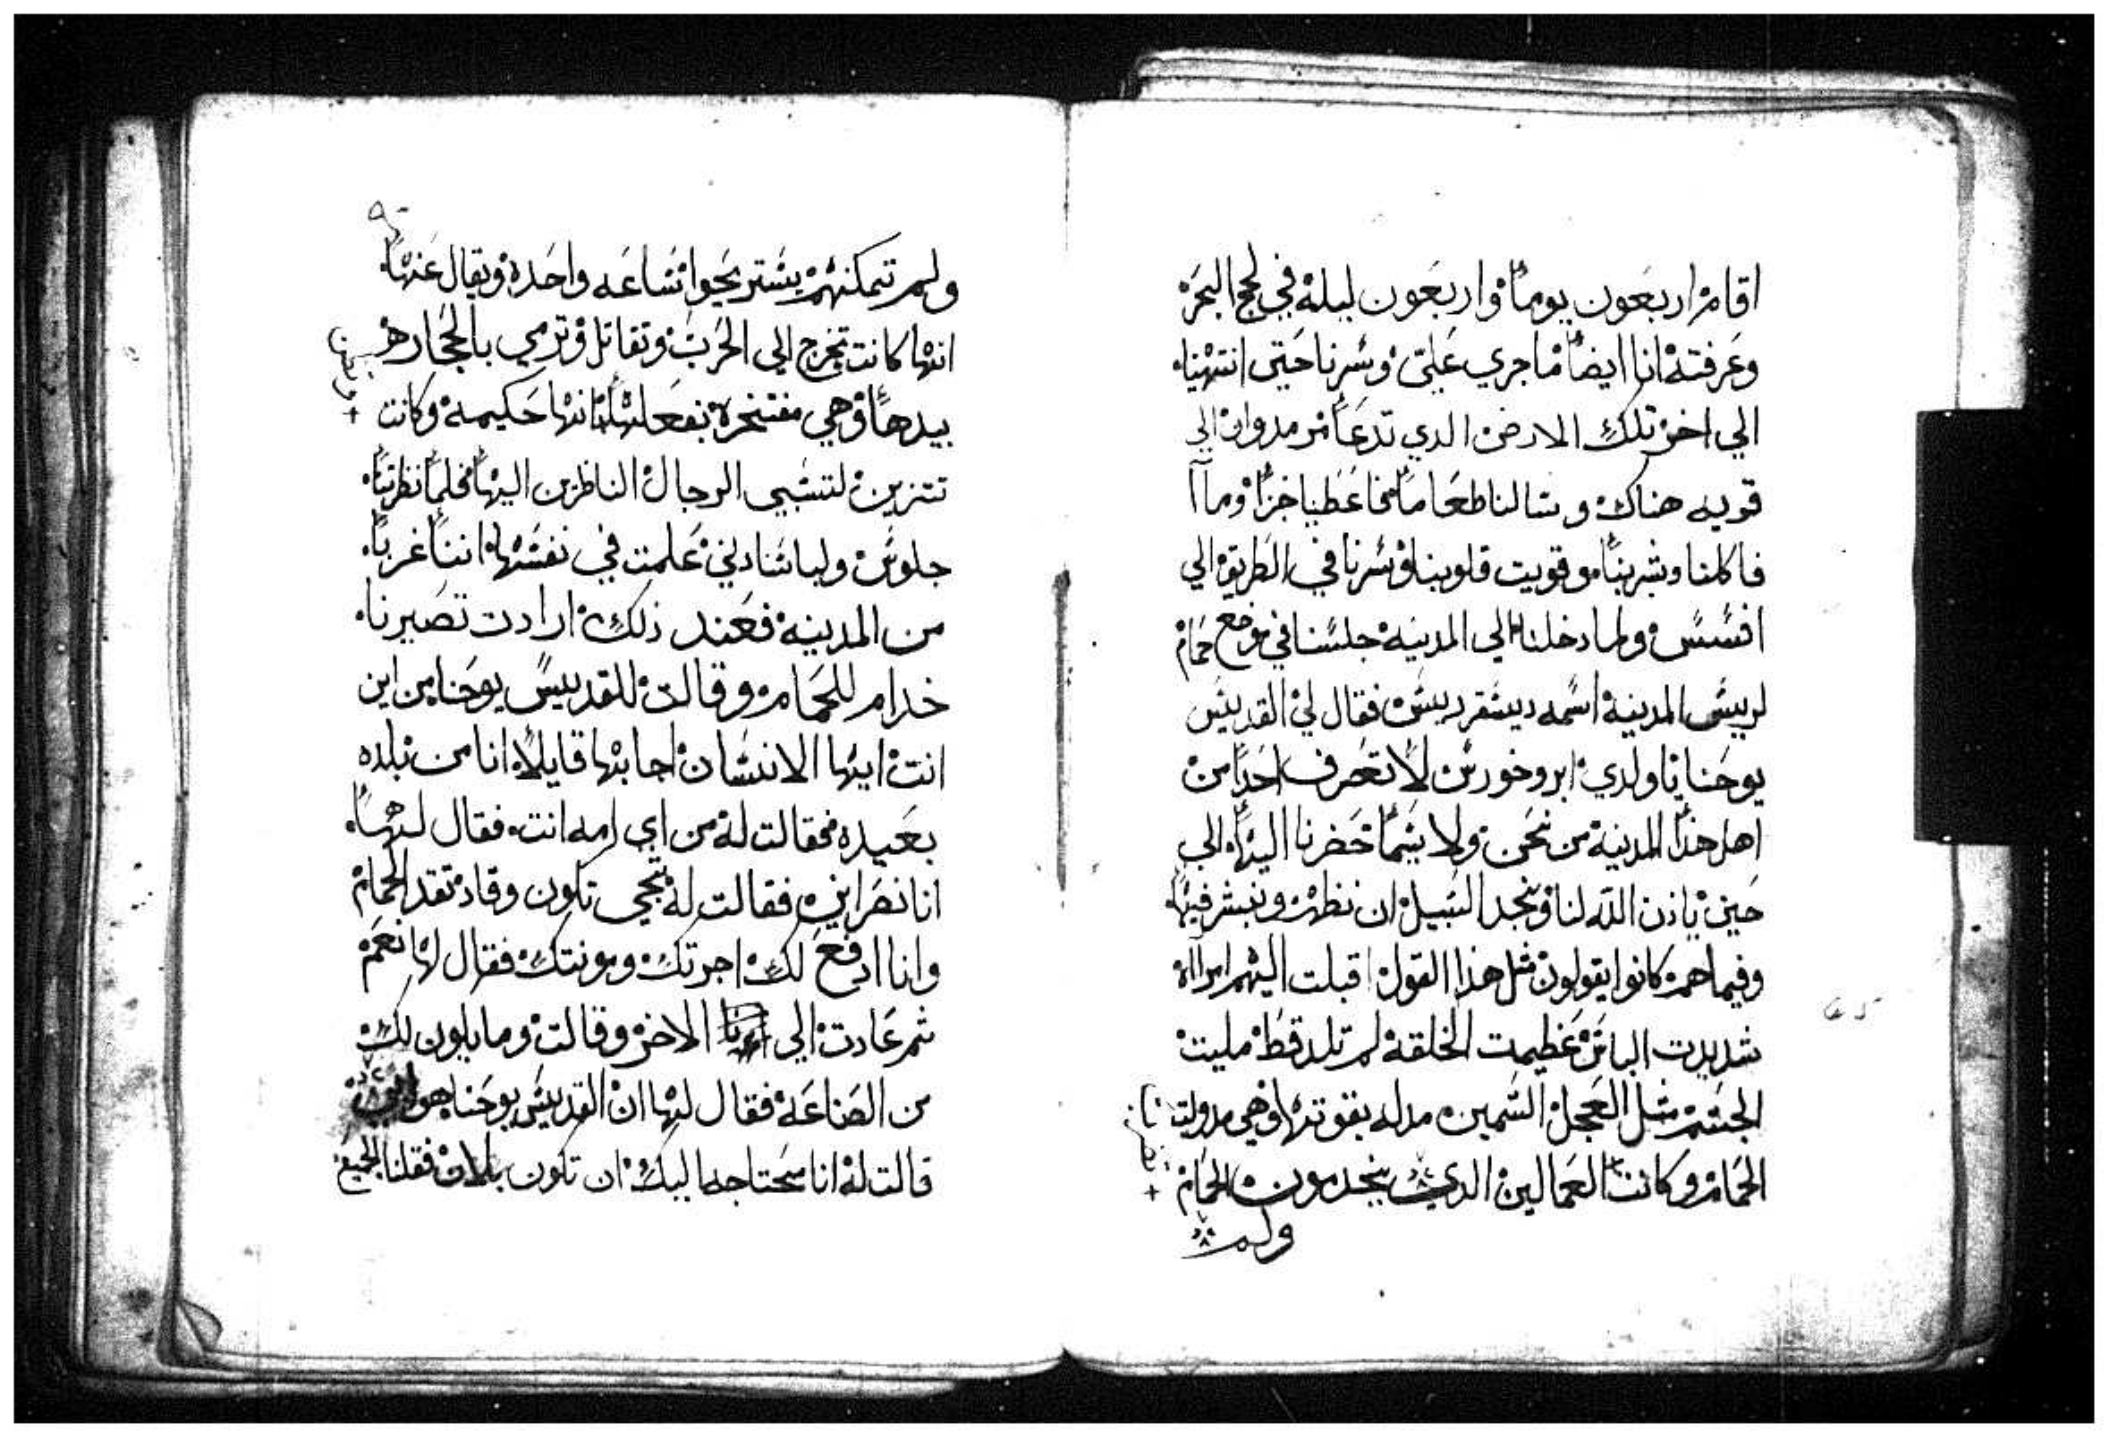 اقام اربعون يوماً واربعون ليلة في لجج البحر
وعرفته انا ايضاً ما جري علي وسرنا حتي انتهينا
الي اخر تلك الارض الدي تدعا مر مدوان الي
قويه هناك وسالنا طعاماً فاعطينا خبزاً وماآ
فاكلنا وشربنا وقويت قلوبنا وسرنا في الطريق الي
افسس ولما دخلنا الي المدينة جلسنا في موضع حمام
لرييس المدينة اسمه ديسقرديس فقال لي القديس
يوحنا يا ولدي ابروخورس لا تعرف احداً من
اهل هذا المدينة من نحن ولا يثما حضرنا اليها الي
حين ياذن الله لنا ونجد السبيل ان نظهر ونبشر فيها
وفيما هم كانوا يقولون مثل هذا القول اقبلت اليهم امرااة
شديدت الباس عظيمت الخلقة لم تلد قط مليت
الجسم مثل العجل السمين مدله بقوتها وهي مدولت
الحمام وكانت العمالين الدي يخدمون الحمام
ولم
ولم تمكنهم يستريحوا ساعه واحدة ويقال عنها
انها كانت تخرج الي الحرب وتقاتل وترمي بالحجاره
بيدها وهي مفتخرة بفعلها انها حكيمة وكانت
تتزين لتسبي الرجال الناظرين اليها فلما نظرتنا
جلوس ولباسنا دني علمت في نفسها اننا غربا
من المدينة فعند ذلك ارادت تصيرنا
خدام للحمام وقالت للقديس يوحنا من اين
انت ايها الانسان اجابها قايلاً انا من بلده
بعيده فقالت له من اي امه انت فقال لها
انا نصراني فقالت له تجي تكون وقاد تقد الحمام
وانا ادفع لك اجرتك ومونتك فقال لها نعم
ثم عادت الي الاخر وقالت وما يكون لك
من الصناعة فقال لها ان القديس يوحنا هو
قالت له انا محتاجه اليك ان تكون بلان فقلنا الجميع